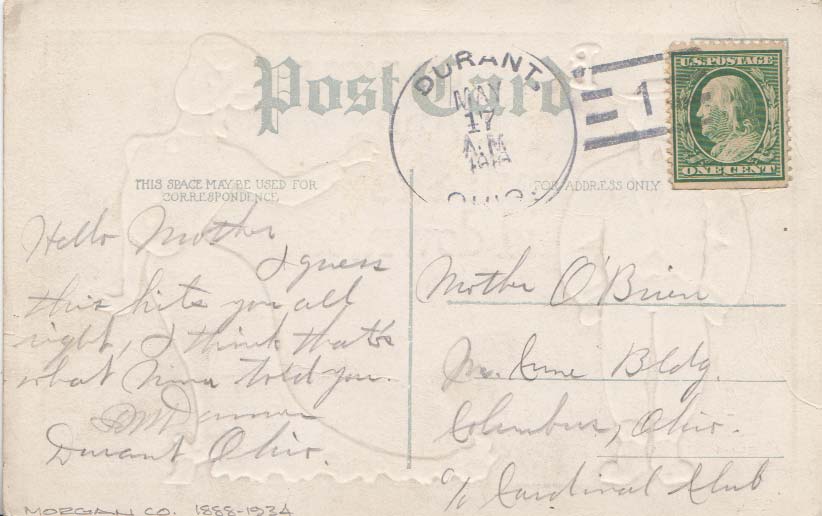 Post Card
U.S. POSTAGE
ONE CENT
DURANT.
MAY
17
A.M
OHIO.
1
THIS SPACE MAY BE USED FOR
CORRESPONDENCE
FOR ADDRESS ONLY
Hello Mother
I guess
this hits you all
right, I think that's
what Nina told you.
Durant Ohio.
Mother O'Brien
Bldg.
Columbus, Ohio.
c/o Cardinal Club
MORGAN CO. 1888-1934